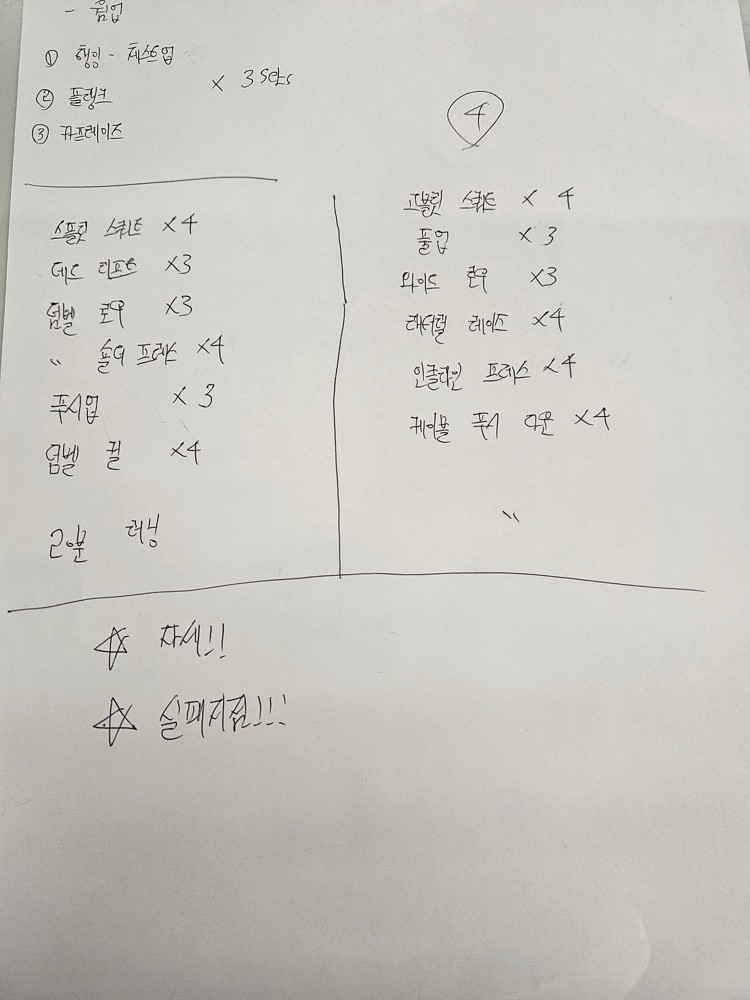 - 웜업
① 행잉 - 체스트업
② 플랭크
× 3 sets
③ 카프레이즈
스플릿 스쿼트 ×4
데드 리프트 ×3
덤벨 로우 ×3
〃 숄더 프레스 ×4
푸시업 ×3
덤벨 컬 ×4
2분 러닝
4
고블릿 스쿼트 × 4
풀업 × 3
와이드 로우 ×3
래터럴 레이즈 ×4
인클라인 프레스 ×4
케이블 푸시 다운 ×4
〃
☆ 자세!!
☆ 실패지점!!!